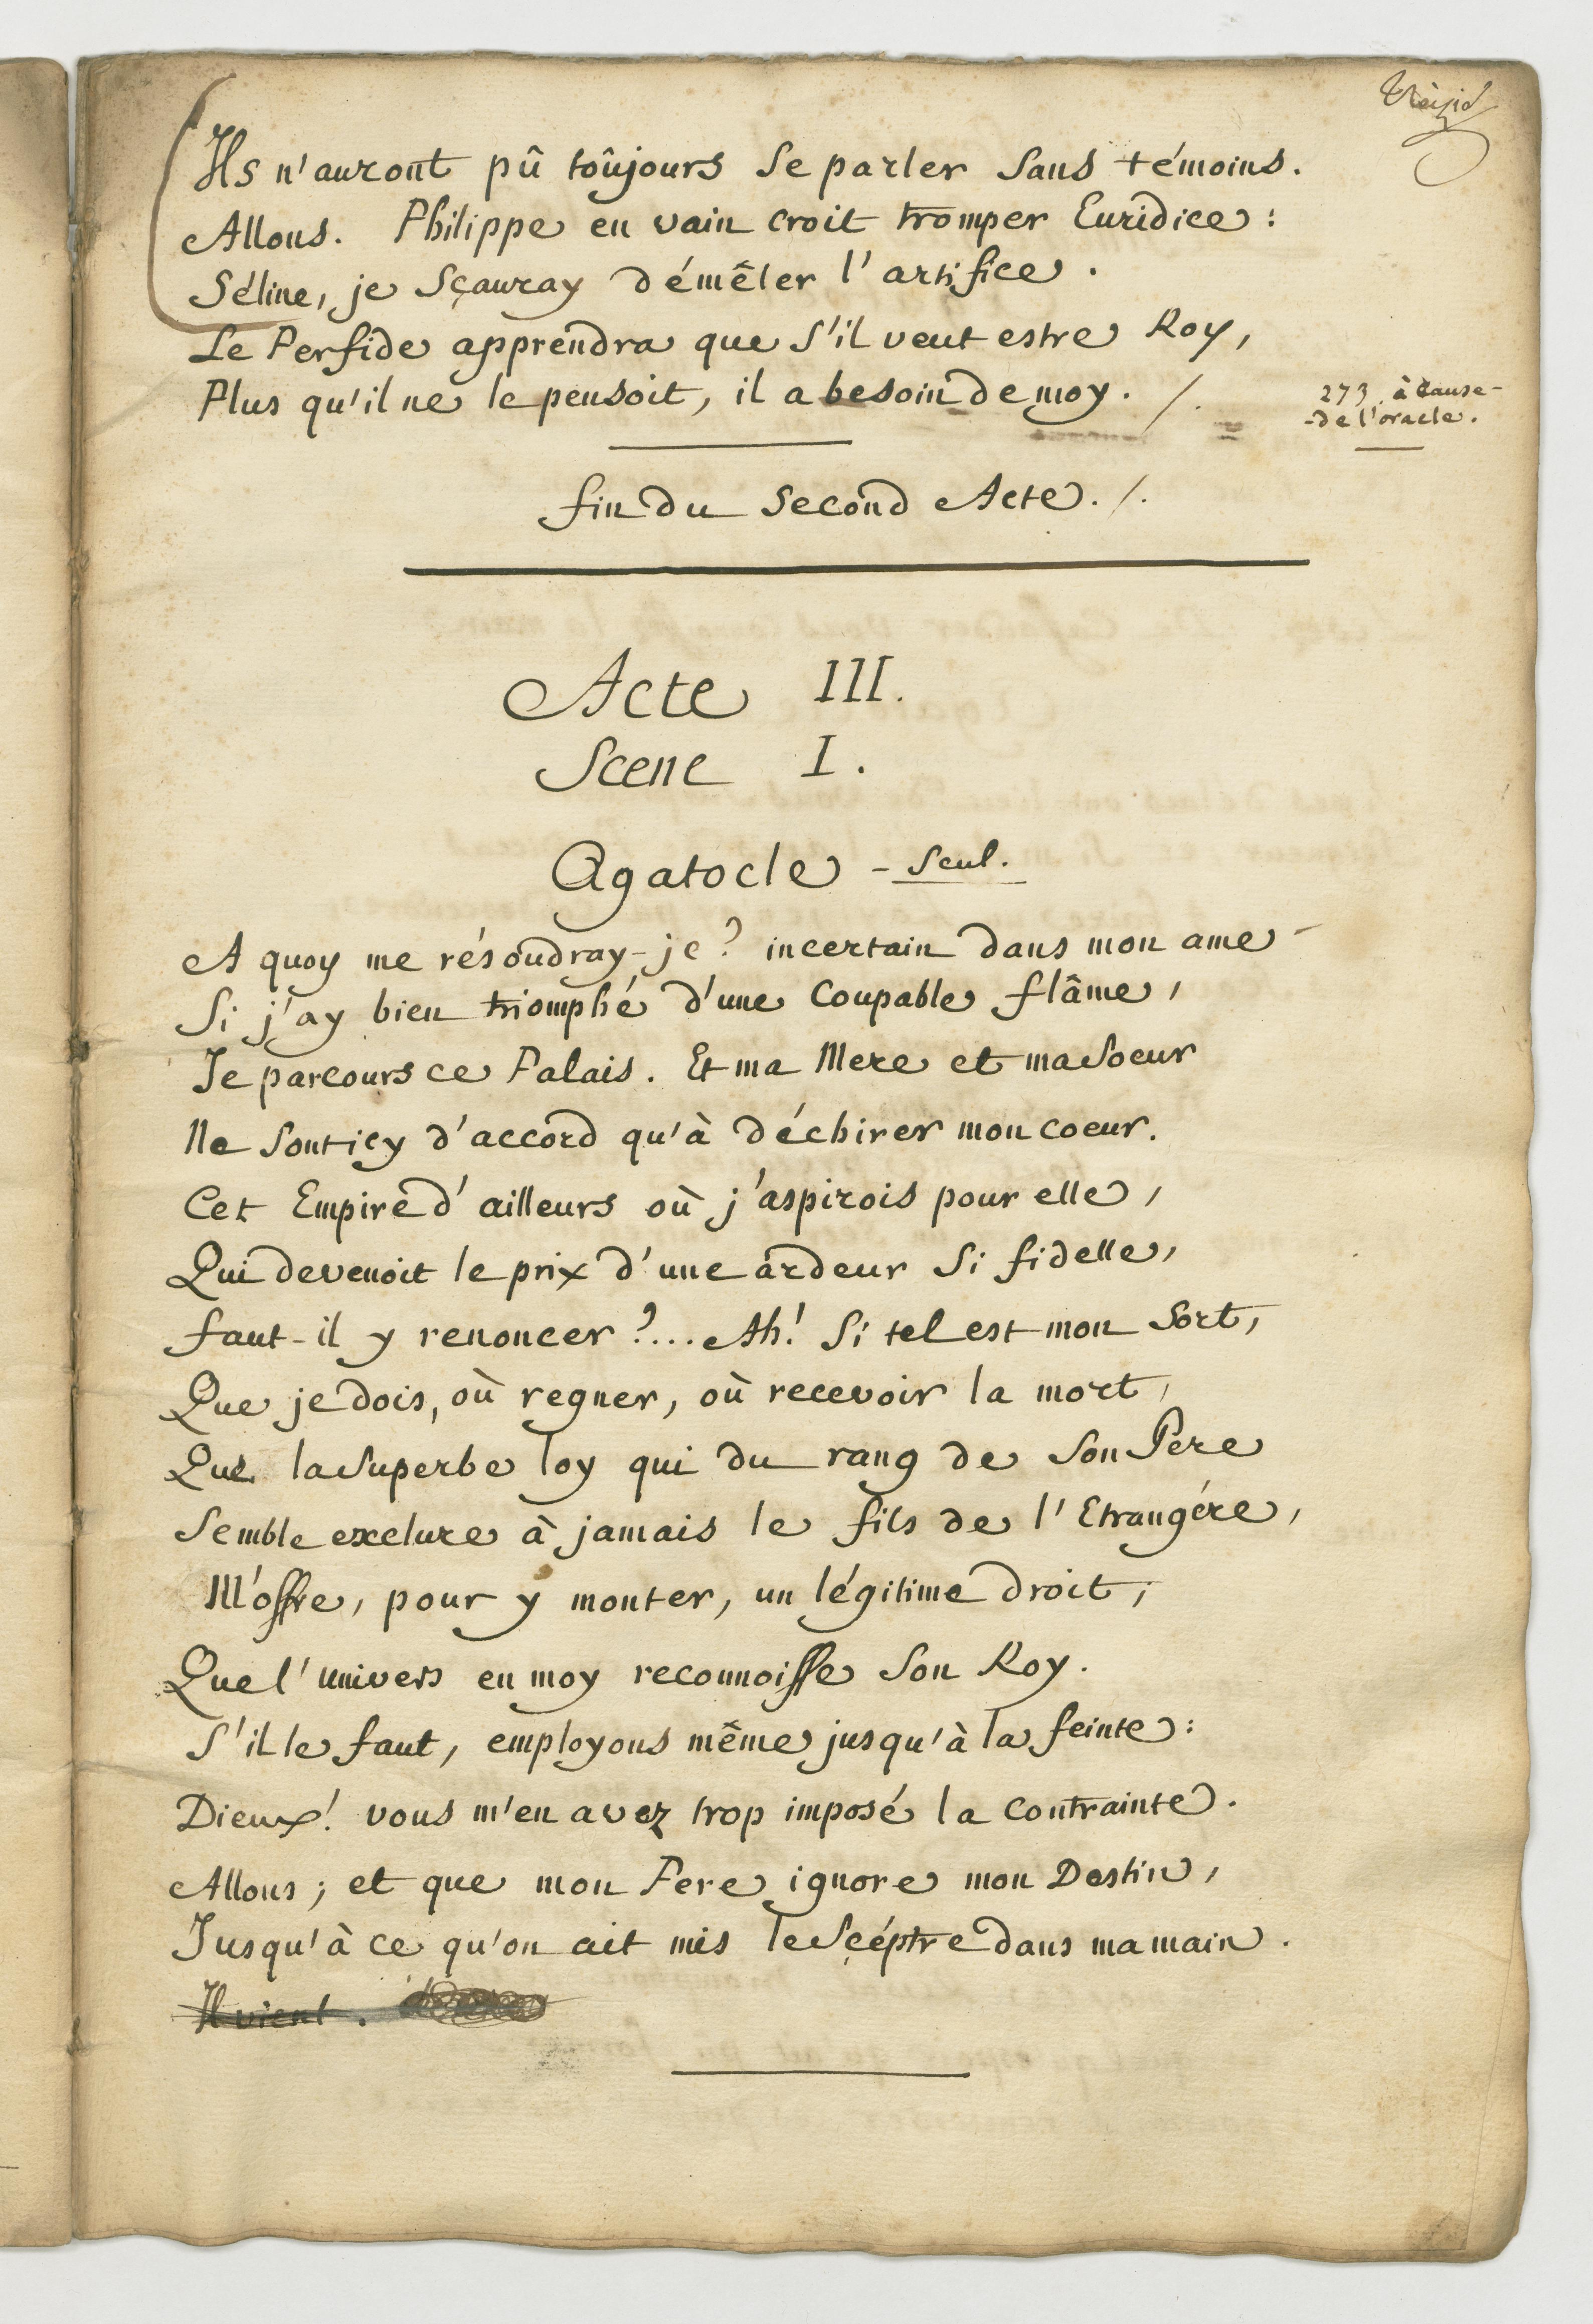 Ils n'auront pû toûjours se parler sans témoins.
Allons. Philippe en vain croit tromper Euridice :
Séline, je sçauray démêler l'artifice.
Le Perfide apprendra que s'il veut estre Roy,
Plus qu'il ne le pensoit, il a besoin de moy. /.
273. à cause-
-de l'oracle.
fin du Second Acte. /.
Acte III.
Scene I.
Agatocle - seul.
A quoy me résoudray-je ? incertain dans mon ame
Si j'ay bien triomphé d'une coupable flâme,
Je parcours ce Palais. Et ma Mere et ma soeur
Ne sont icy d'accord qu'à déchirer mon coeur.
Cet Empire d'ailleurs où j'aspirois pour elle,
Qui devenoit le prix d'une ardeur si fidelle,
faut-il y renoncer ?... Ah ! si tel est mon sort,
Que je dois, où regner, où recevoir la mort,
Que la superbe loy qui du rang de son Pere
Semble exclure à jamais le fils de l'Etrangére,
M'offre, pour y monter, un légitime droit,
Que l'univers en moy reconnoisse son Roy.
S'il le faut, employons même jusqu'à la feinte :
Dieux ! vous m'en avez trop imposé la contrainte.
Allons ; et que mon Pere ignore mon Destin,
Jusqu'à ce qu'on ait mis le Scéptre dans ma main.
Il vient.